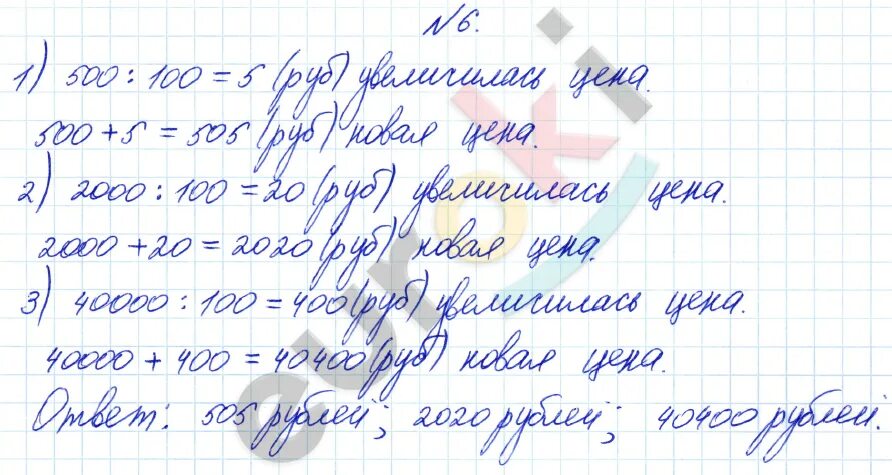 №6.
1) 500 : 100 = 5 (руб) увеличилась цена.
500 + 5 = 505 (руб) новая цена.
2) 2000 : 100 = 20 (руб) увеличилась цена.
2000 + 20 = 2020 (руб) новая цена.
3) 40000 : 100 = 400 (руб) увеличилась цена.
40000 + 400 = 40400 (руб) новая цена.
Ответ: 505 рублей; 2020 рублей; 40400 рублей.
euroki